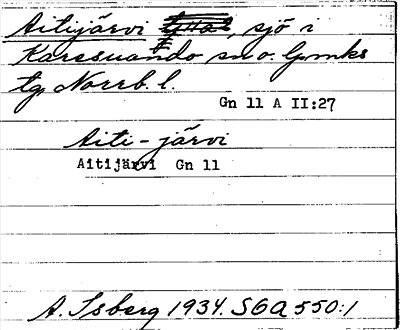 Aitijärvi, sjö i
Karesuando sn o. Gmks
tg Norrb. l.
Gn 11 A II:27
Aiti-järvi
Aitijärvi Gn 11
A. Isberg 1934. SGA 550:1